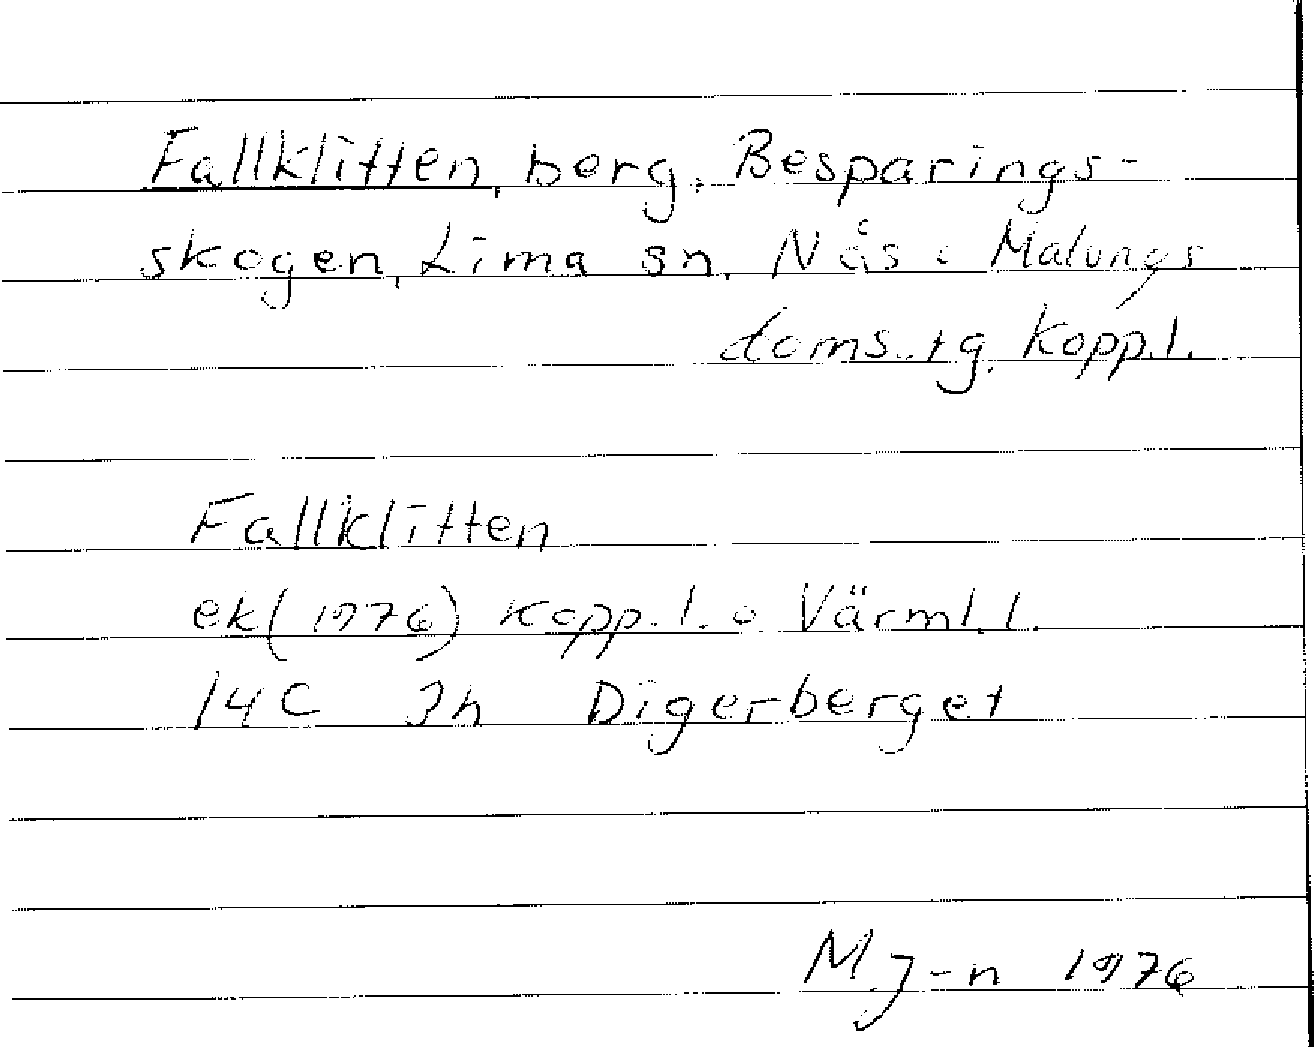 Fallklitten, berg, Besparings-
skogen, Lima sn. Nås o Malungs
doms.tg. Kopp.l.
Fallklitten
ek(1976) Kopp.l. o Värml.l.
14C 3h Digerberget
M J-n 1976